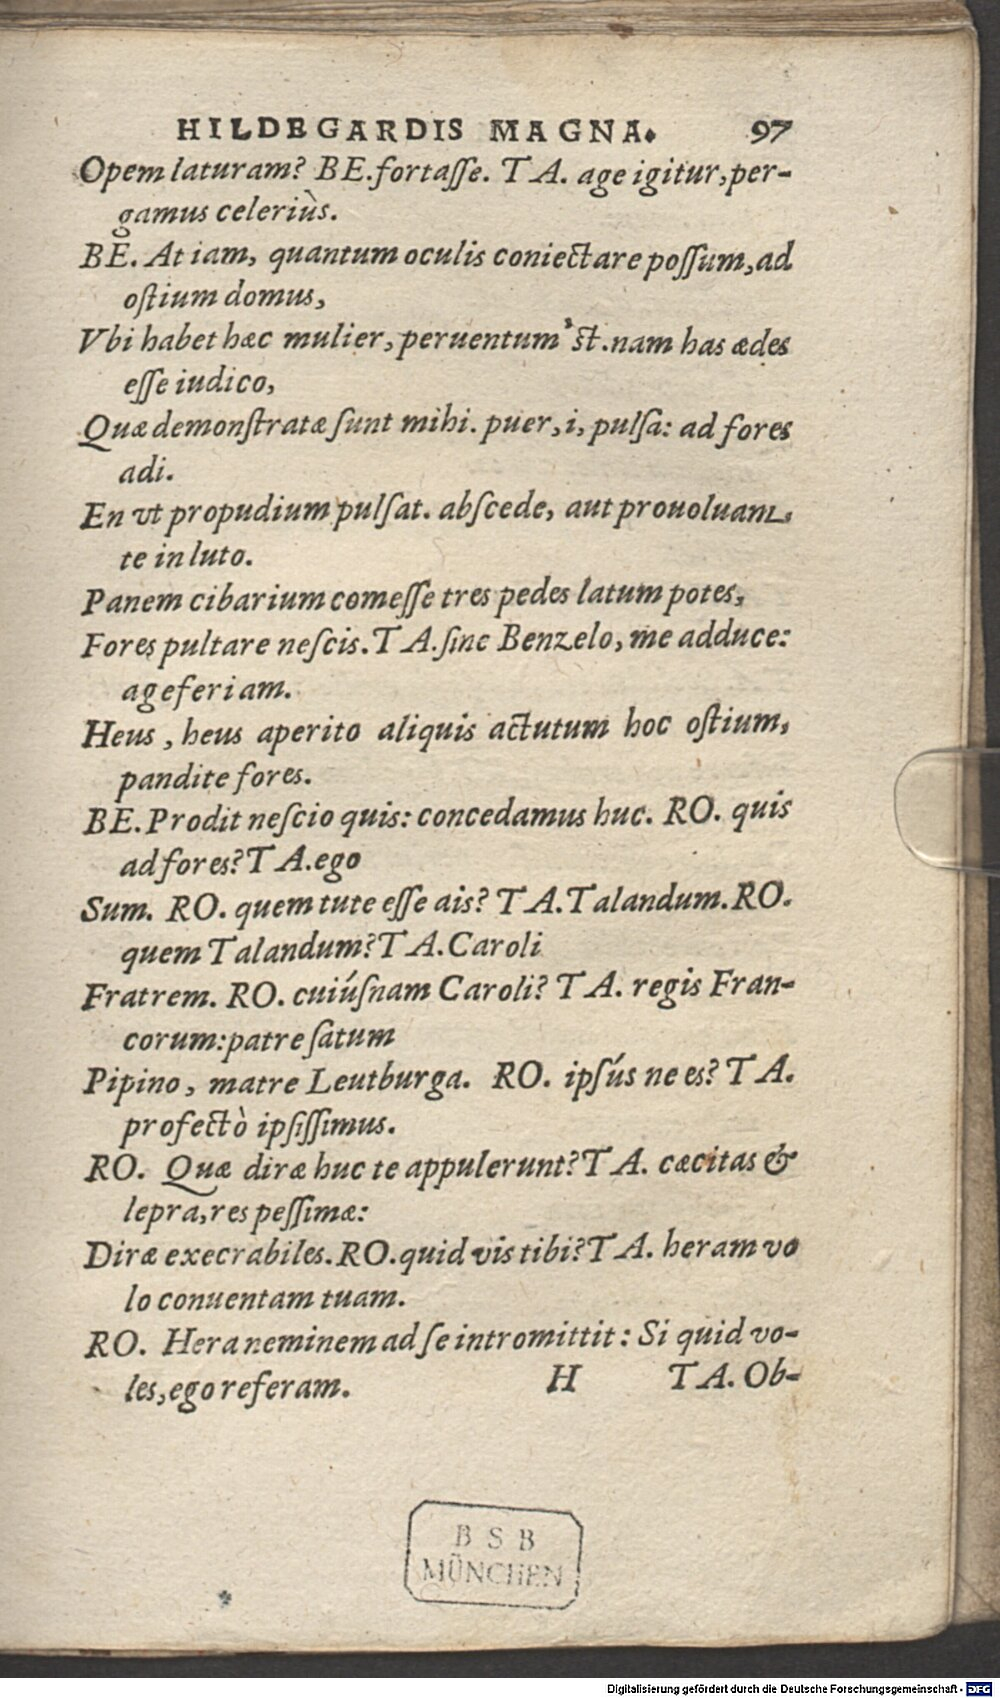 HILDEGARDIS MAGNA. 97
Opem laturam? BE. fortaſſe. TA. age igitur, per-
gamus celeriùs.
BE. At iam, quantum oculis coniectare poſſum, ad
oſtium domus,
Vbi habet hæc mulier, peruentum'ſt. nam has ædes
eſſe iudico,
Quæ demonſtratæ ſunt mihi. puer, i, pulſa: ad fores
adi.
En vt propudium pulſat. abſcede, aut prouoluam
te in luto.
Panem cibarium comeſſe tres pedes latum potes,
Fores pultare neſcis. TA. ſine Benzelo, me adduce:
age feriam.
Heus, heus aperito aliquis actutum hoc oſtium,
pandite fores.
BE. Prodit neſcio quis: concedamus huc. RO. quis
ad fores? TA. ego
Sum. RO. quem tute eſſe ais? TA. Talandum. RO.
quem Talandum? TA. Caroli
Fratrem. RO. cuiúſnam Caroli? TA. regis Fran-
corum: patre ſatum
Pipino, matre Leutburga. RO. ipſús ne es? TA.
profectò ipſiſſimus.
RO. Quæ diræ huc te appulerunt? TA. cæcitas &
lepra, res peſſimæ:
Diræ execrabiles. RO. quid vis tibi? TA. heram vo
lo conuentam tuam.
RO. Hera neminem ad ſe intromittit: Si quid vo-
les, ego referam. H TA. Ob-
BSB
MÜNCHEN
Digitalisierung gefördert durch die Deutsche Forschungsgemeinschaft - DFG